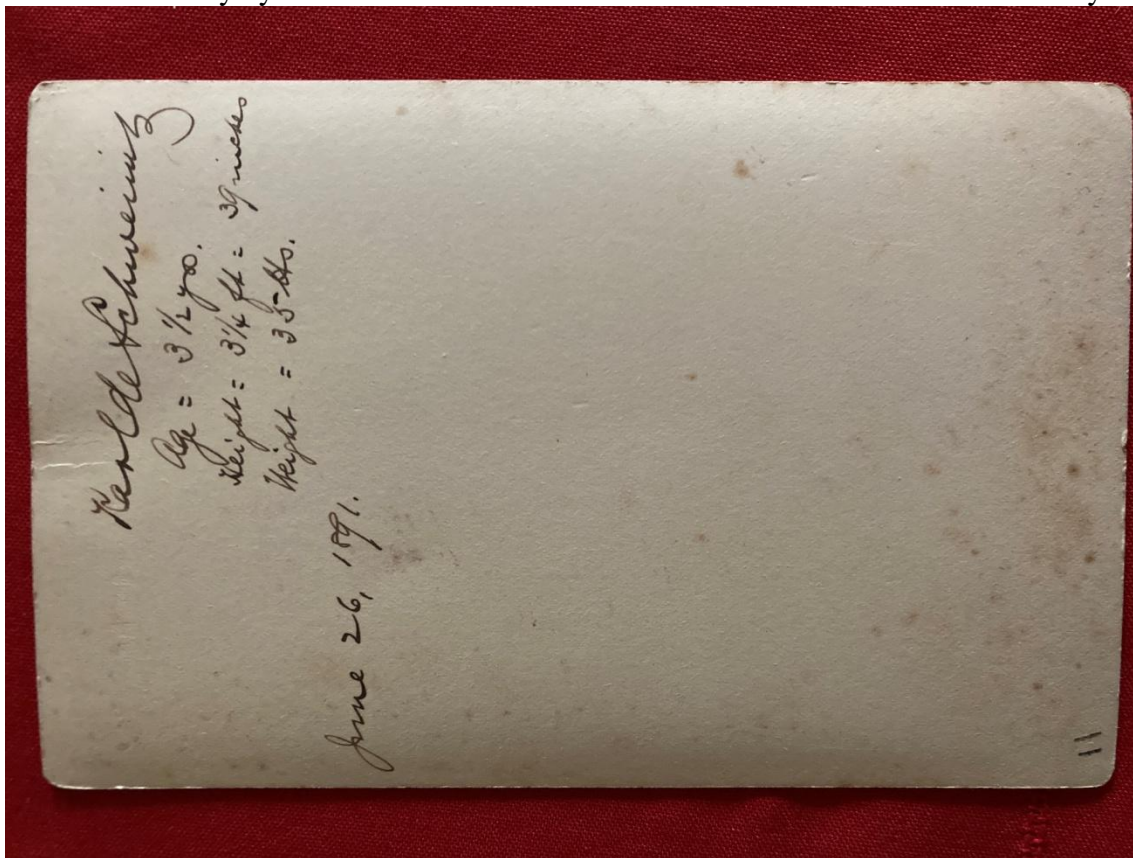 Karl de Schweinitz
Age = 3 1/2 yrs.
Height = 3 1/4 ft = 39 inches
Weight = 35 lbs.
June 26, 1891.
11